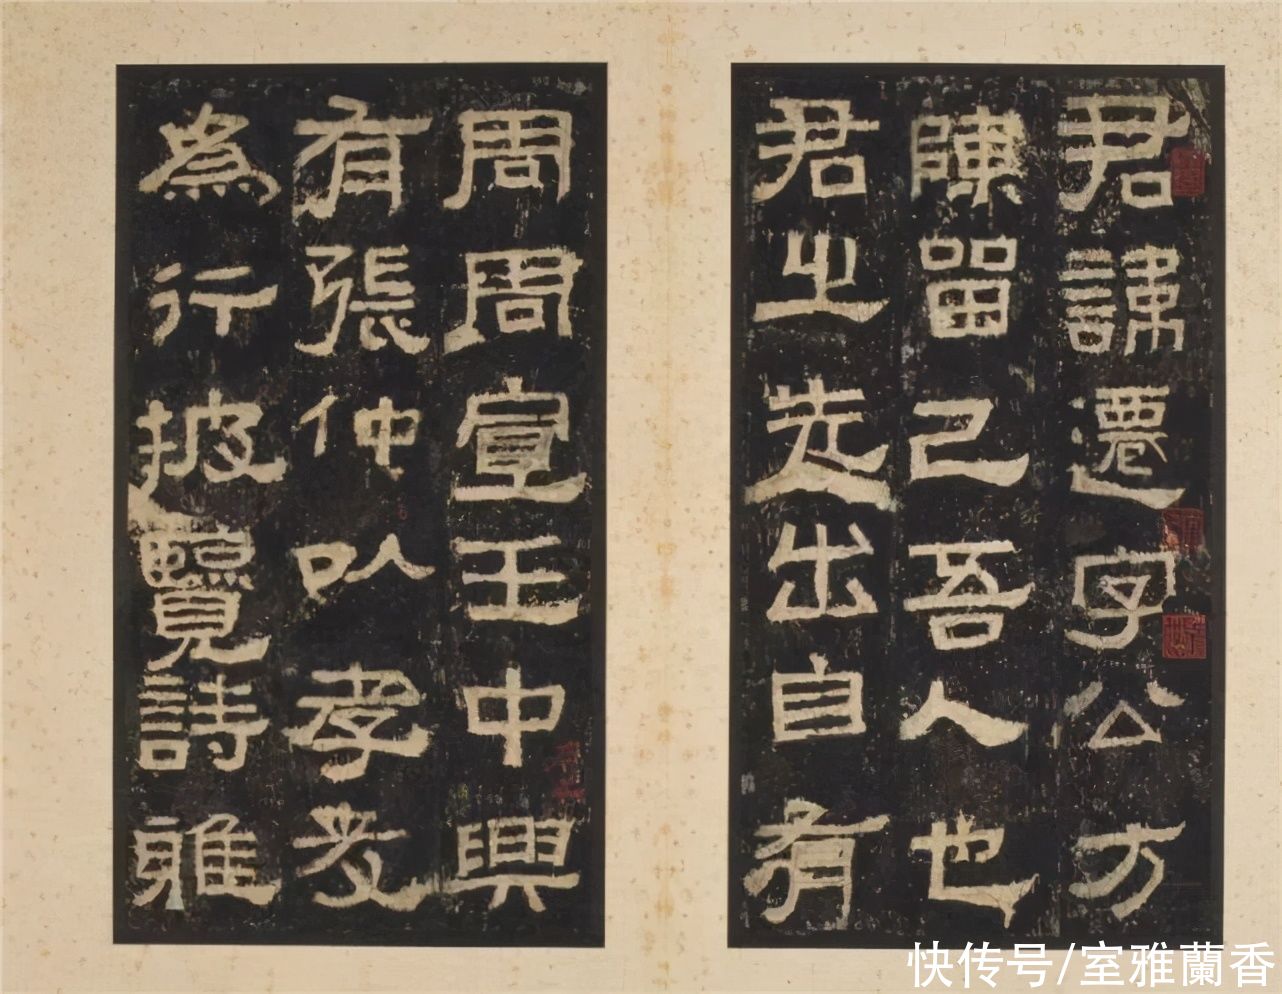 君諱遷字公方
陳留己吾人也
君之先出自有
周周宣王中興
有張仲以孝友
為行披覽詩雅
快传号/室雅蘭香